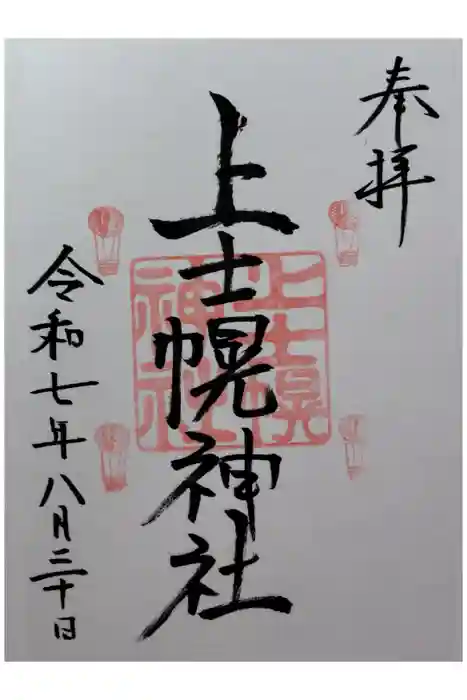 奉拝
上士幌神社
上士幌神社
令和七年八月三十日